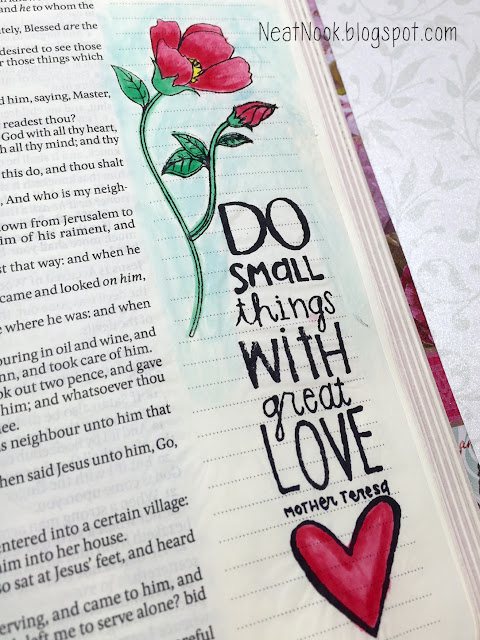 NeatNook.blogspot.com
nd he to whom the
ately, Blessed are the
desired to see those
r those things which
d him, saying, Master,
readest thou?
God with all thy heart,
h all thy mind; and thy
this do, and thou shalt
, And who is my neigh-
down from Jerusalem to
im of his raiment, and
st that way: and when he
came and looked on him,
e where he was: and when
ouring in oil and wine, and
nn, and took care of him.
ok out two pence, and gave
him; and whatsoever thou
ee.
s neighbour unto him that
hen said Jesus unto him, Go,
entered into a certain village:
im into her house.
so sat at Jesus' feet, and heard
erving, and came to him, and
left me to serve alone? bid
DO
small
things
WITH
great
LOVE
MOTHER TERESA